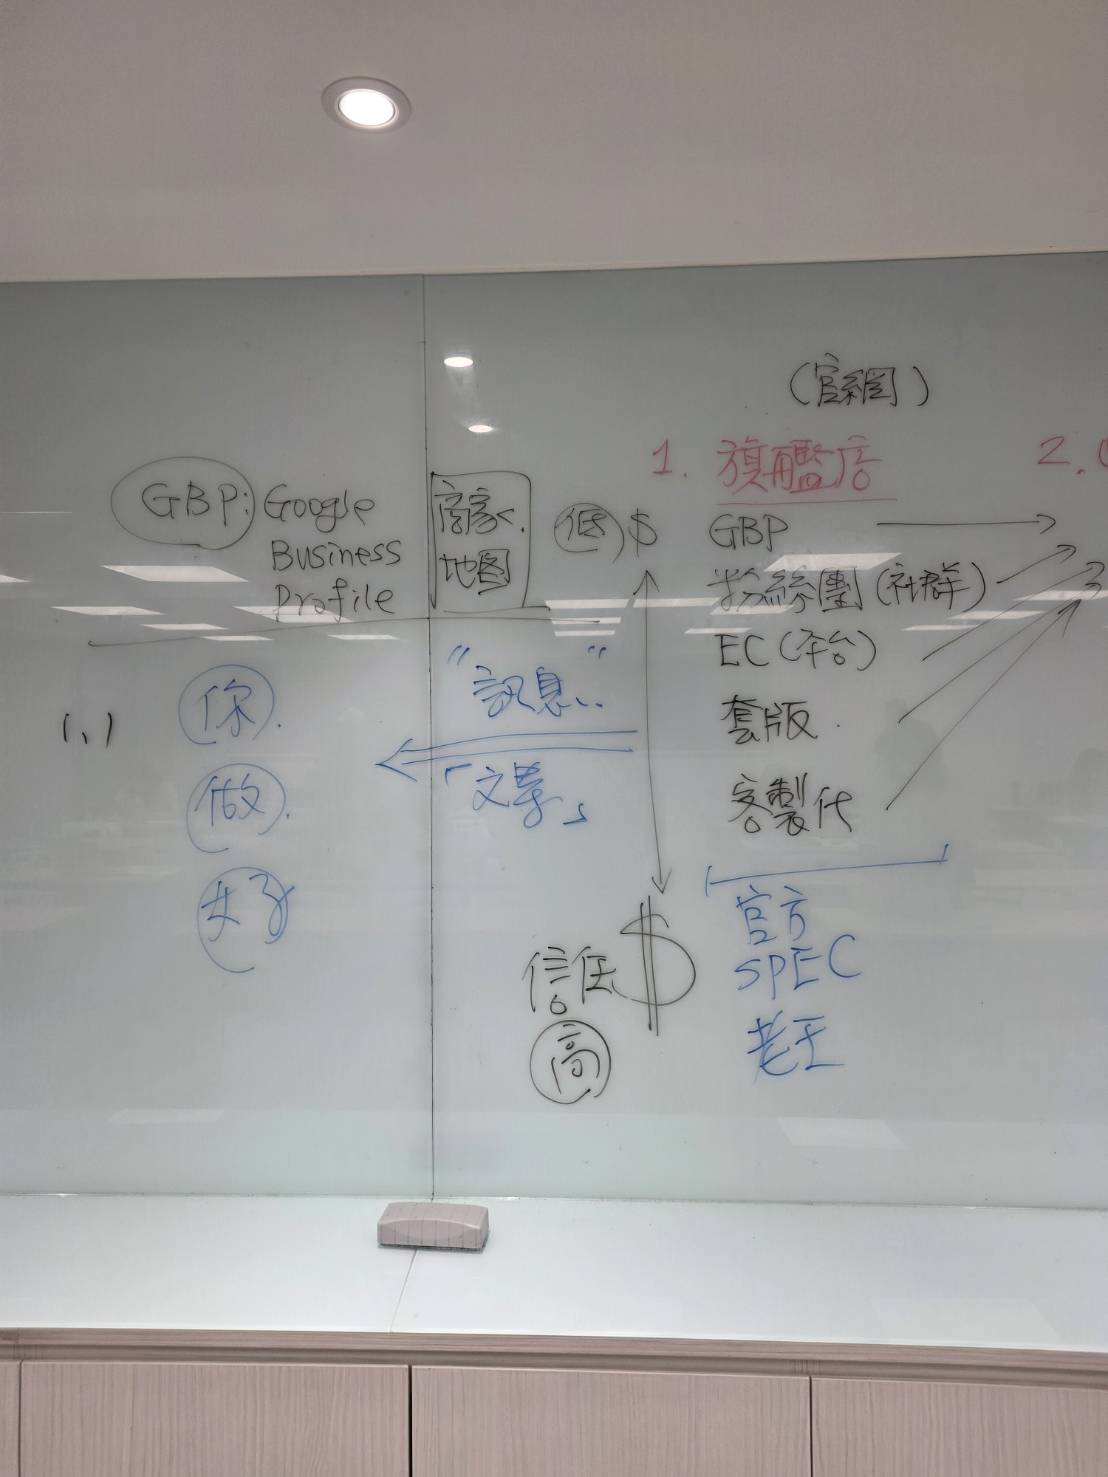 (官網)
1. 旗艦店
2.
GBP: Google
Business
Profile
商家
地图
低 $
GBP
粉絲團(社群)
EC(平台)
套版
客製化
(、)
你
做
好
"訊息"
「文章」
信任 $
高
官方
SPEC
老王